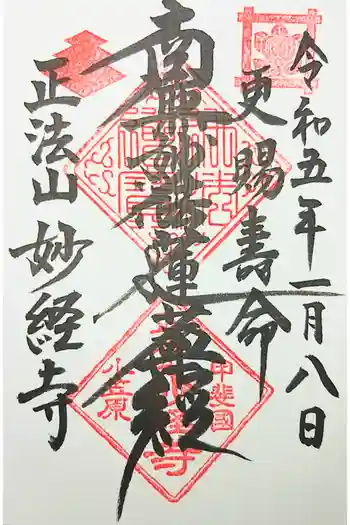 令和五年一月八日
更賜壽命
南無妙法蓮華経
正法山妙経寺
甲斐國
小笠原